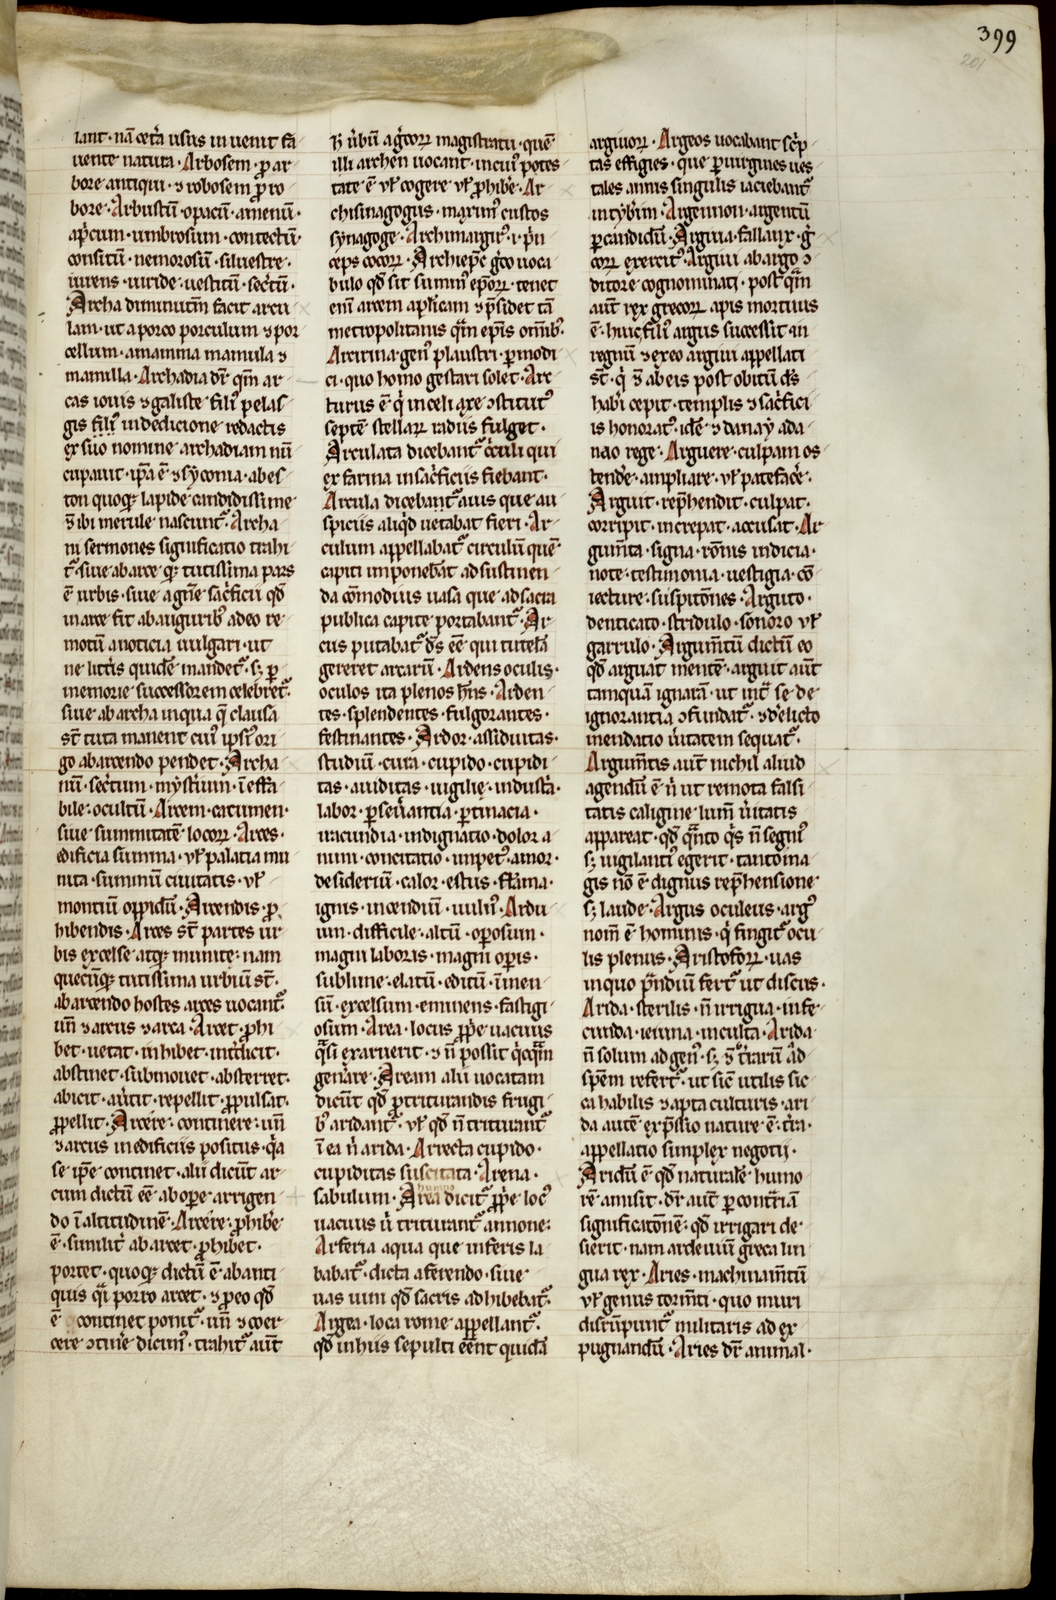 399
201
iant · nā cet̄a usus in uenit fa
uente natura · Arbosem · ꝓ ar
bore antiqui · ⁊ robosem ꝓ ro
bore · Arbustū · opacū · amenū ·
ap̄cum · umbrosum · contectū ·
consitū · nemorosū · siluestre ·
iurens · uiride · uestitū · sec̄tū ·
Archa diminutiū facit arcu
lam · ut a porco porculum ⁊ por
cellum · a mamma mamula ⁊
mamilla · Archadia dr̄ qm̄ ar
cas iouis ⁊ galiste filiꝰ pelas
gis filiꝰ in dedicione redactis
ex suo nomine archadiam nū
cupauit · ip̄a ē ⁊ syconia · abes
ton quoqꝫ lapidē candidissime
⁊ ibi merule nascunt᷑ · Archa
ni sermones significatio trahi
t᷑ · siue ab arce qꝫ tutissima pars
ē urbis · siue a gn̄e sac̄ficii qd̄
in arce fit ab auguribꝰ adeo re
motū a noticia uulgari · ut
ne litt̄is quidē mandet᷑ · sꝫ ꝑ
memorie successorem celebret᷑ ·
siue ab archa in qua q̄ clausa
st̄ tuta manent cuiꝰ ipsiꝰ ori
go ab arcendo pendet · Archa
nū · sec̄tum · myst̄ium · īeffa
bile · ocultū · Arcem · catumen ·
siue summitatē locoꝝ · Arces ·
edificia summa · ul̄ palatia mu
nita · summū ciuitatis · ul̄
montiū oppidū · Arcendis · ꝓ
hibendis · Arces st̄ partes ur
bis excelse atqꝫ munite · nam
quecūqꝫ tutissima urbiū st̄ ·
ab arcendo hostes arces uocant᷑ ·
un̄ ⁊ arcus ⁊ arca · Arcet · ꝓhi
bet · uetat · inhibet · int̄dicit ·
abstinet · submouet · absterret ·
abicit · au̇tit · repellit · ꝓpulsat ·
ꝓpellit · Arcēre · continere · un̄
⁊ arcus in edificiis positus · q̇a
se ip̄e continet · alii dicūt ar
cum dictū ēē ab oꝑe · arrigen
do ī altitudinē · Arcēre · ꝓhibe
ē · similit̄ ab arcet · ꝓhibet ·
portet · quoqꝫ dictū ē ab anti
quis q̄i porro arcet · ⁊ ꝓ eo qd̄
ē continet ponit᷑ · un̄ ⁊ coer
cere ↄtin̄e dicimꝰ · trahit᷑ aūt
h̄ ūbū a g̓coꝝ magistratu · quē
illi archen uocant · in cuiꝰ potes
tate ē ul̄ cogere ul̄ ꝓhibe · Ar
chisinagogus · maximꝰ custos
synagoge · Archimagirꝰ · i · p̓n
ceps cocoꝝ · Archiep̄c g̓co uoca
bulo qd̄ sit summꝰ ep̄oꝝ · tenet
eni᷑ arcem apl̄icam ⁊ p̄sidet tā
metropolitanis quā ep̄is om̄ibꝰ ·
Arcirina · genꝰ plaustri · ꝑmodi
ci · quo homo gestari solet · Arc
turus ē q̓ in celi axe ↄstitutꝰ
septē stellaꝝ radiis fulget ·
Arculata dicebant᷑ c̓culi qui
ex farina in sac̓ficiis fiebant ·
Arcula dicebant᷑ auis que au
spiciis aliq̓d uetabat fieri · Ar
culum appellabat᷑ circulū quē
capiti imponebāt ad sustinen
da cōmodius uasa que ad sacra
publica capite portabant᷑ · Ar
cus putabat᷑ ds̄ ēē qui tutelā
gereret arcarū · Ardens oculis ·
oculos ita plenos hn̄s · Arden
tes · splendentes · fulgorantes ·
festinantes · Ardor · assiduitas ·
studiū · cura · cupido · cupidi
tas · auiditas · uigilie · industria ·
labor · ꝑseu̇antia · ꝑtinacia ·
iracundia · indignatio · dolor a
nimi · concitatio · impetꝰ · amor ·
desideriū · calor · estus · flāma ·
ignis · incendiū · uulnꝰ · Ardu
um · difficile · altū · oꝑosum ·
magni laboris · magni oꝑis ·
sublime · elatū · editū · īmen
sū · excelsum · eminens · fastigi
osum · Area · locus ꝓp̓e uacuus
q̄si exaruerit · ⁊ n̄ possit q̓cq̄m
gen̄are · Aream alii uocatam
dicūt qd̄ ꝓ triturandis frugi
bꝰ aridant᷑ · ul̄ qd̄ n̄ triturant᷑
ī ea n̄ arida · Arrecta cupido ·
cupiditas suscitata · Arena ·
sabulum · Area dicit᷑ ꝓp̓e locꝰ
uacuus u̇ triturant᷑ annone ·
Arferia aqua que inferis la
babat᷑ · dicta a ferendo · siue
uas uini qd̄ sacris adhibebat᷑ ·
Argea · loca rome appellant᷑ ·
qd̄ in hiis sepulti eēnt quidā
arguioꝝ · Argeos uocabant sc̓p
tas effigies · que ꝑ uirgines ues
tales annis singulis iaciebant᷑
in tyb̓im · Argennon · argentū
ꝑcandidū · Arguia · fallaux · g̓
coꝝ exercitꝰ · Argiui ab argo ↄ
ditore cognominati · postq̄m
aūt rex grecoꝝ apis mortuus
ē · huic filiꝰ argus successit in
regnū ⁊ ex eo argiui appellati
st̄ · q̓ ⁊ ab eis post obitū ds̄
hab̓i cepit · templis ⁊ sac̓fici
is honorat᷑ · idē ⁊ danay a da
nao rege · Arguere · culpam os
tend̓e · ampliare · ul̄ patefac̓e ·
Arguit · rep̄hendit · culpat ·
corripit · increpat · accusat · Ar
gum̄ta · signa · rōnis indicia ·
note · testimonia · uestigia · cō
iecture · suspitōnes · Arguto ·
denticato · stridulo · sonoro ul̄
garrulo · Argum̄tū dictū eo
qd̄ arguat mentē · arguit aūt
tanquā ignarā · ut int̄ se de
ignorantia ↄfundat᷑ · ⁊ d̓elicto
mendatio u̇itatem sequat᷑ ·
Argum̄tis aūt nichil aliud
agendū ē n̄ ut remota falsi
tatis caligine lumn̄ u̇itatis
appareat · qd̄ q̄nto q̓s n̄ segniꝰ
sꝫ uigilantiꝰ egerit · tanto ma
gis nō ē dignus rep̄hensione
sꝫ laude · Argus oculeus · argꝰ
nom̄ ē hominis · q̓ fingit᷑ ocu
lis plenus · Aristoforꝝ · uas
in quo p̄ndiū fert᷑ ut discus ·
Arida · sterilis · n̄ irrigua · infe
cunda · ieiuna · inculta · Arida
n̄ solum ad genꝰ · sꝫ ⁊ t̓rarū ad
spēm refert᷑ · ut sic̄ utilis sic
ca habilis ⁊ apta culturis · ari
da autē exp̄ssio nature ē · t̓ra ·
appellatio simplex negotii ·
Aridū ē qd̄ naturalē humo
rē amisit · dr̄ aūt ꝑ contrariā
significatōnē · qd̄ irrigari de
sierit · nam ardeuiū greca lin
gua rex · Aries · machinam̄tū
ul̄ genus torm̄ti · quo muri
disrūpunt᷑ militaris ad ex
pugnandū · Aries dr̄ animal ·